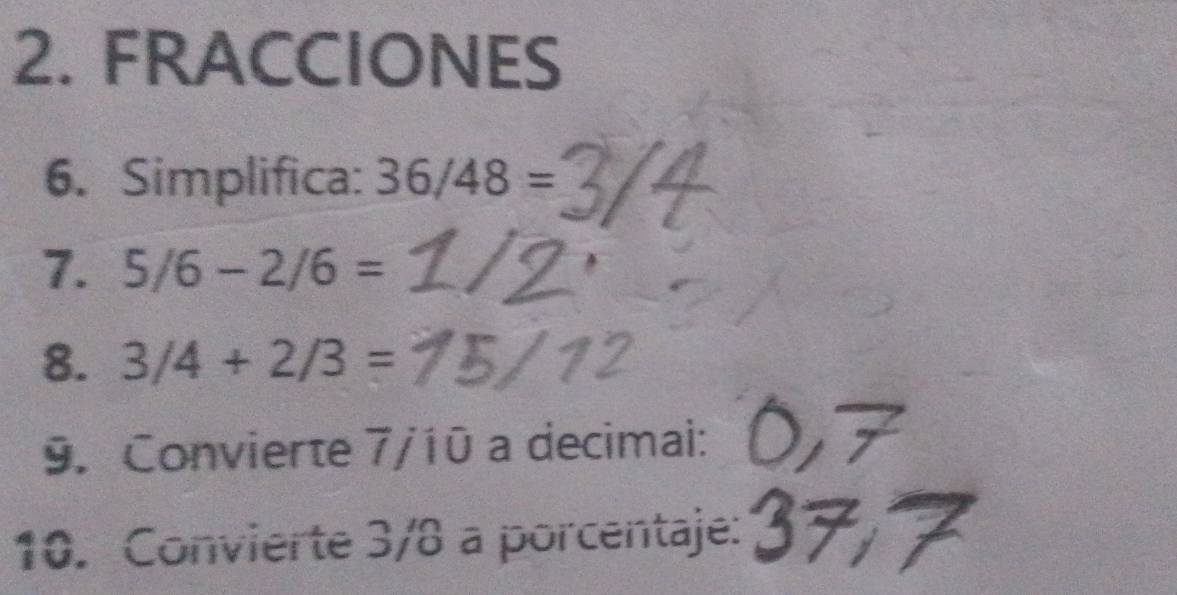 2. FRACCIONES
6. Simplifica: 36/48 = 3/4
7. 5/6 – 2/6 = 1/2
8. 3/4 + 2/3 = 15/12
9. Convierte 7/10 a decimal: 0,7
10. Convierte 3/8 a porcentaje: 37,7